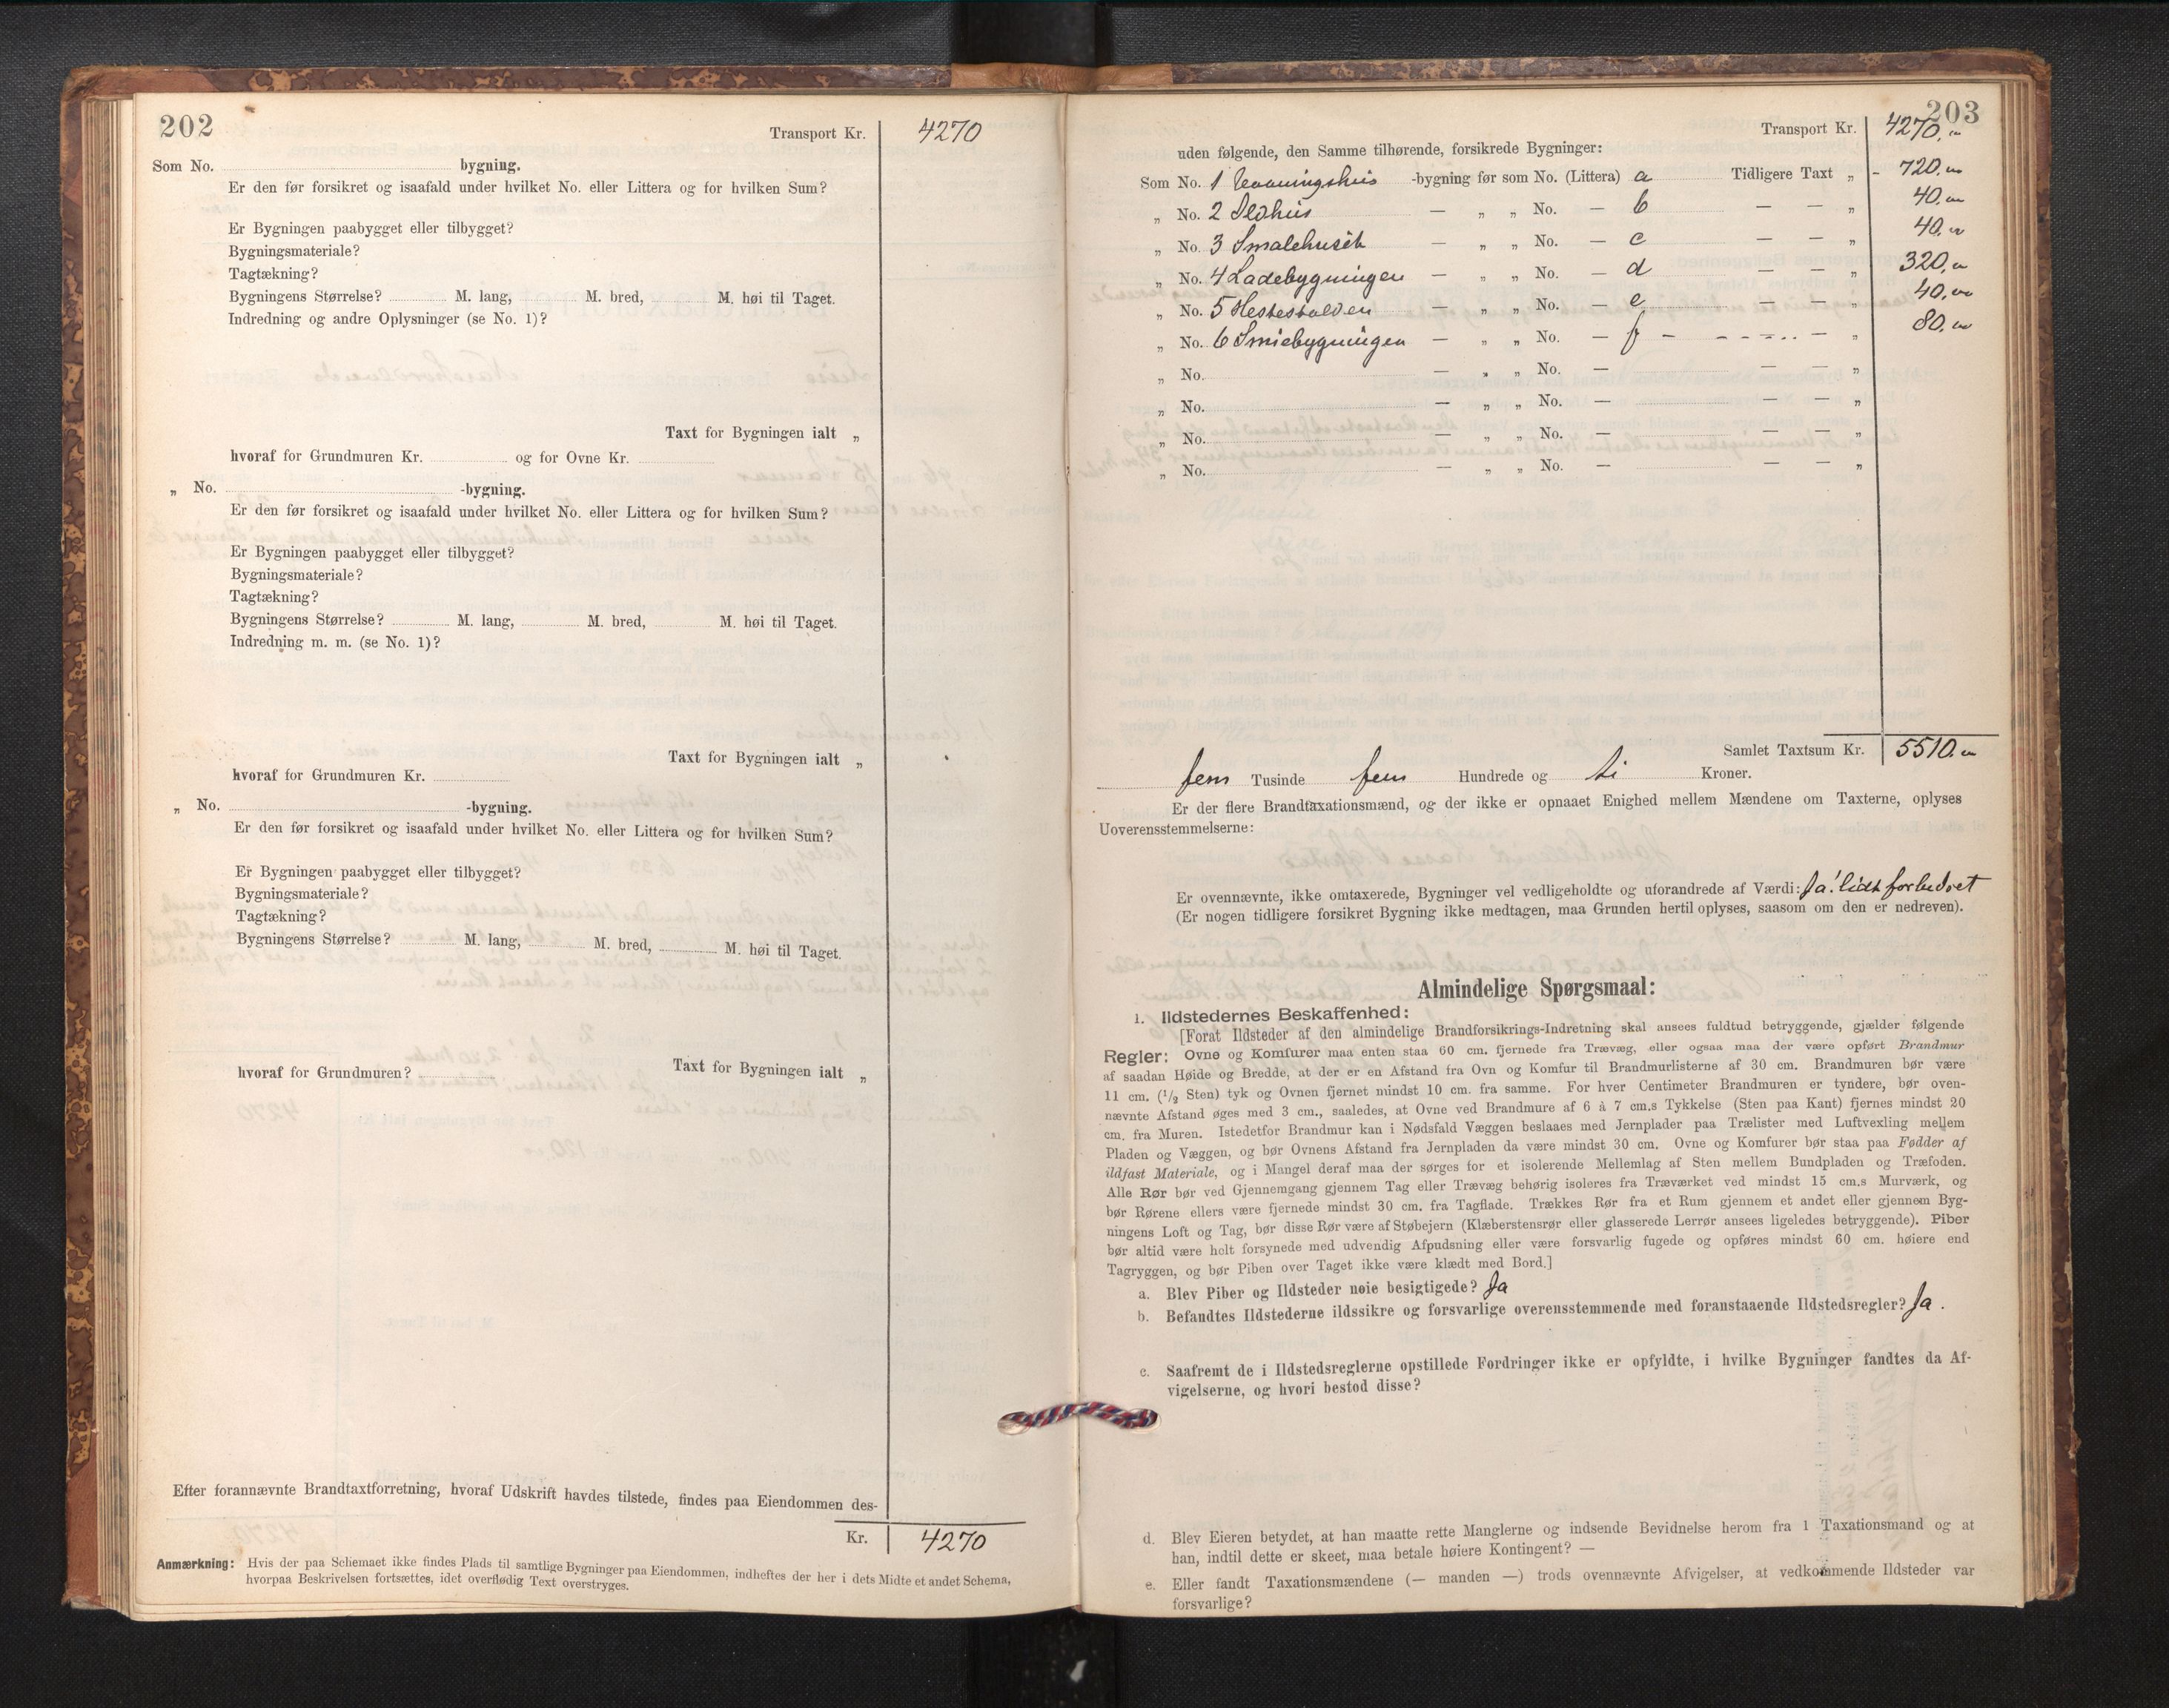 202
Transport Kr. 4270
Som No. bygning.
Er den før forsikret og isaafald under hvilket No. eller Littera og for hvilken Sum?
Er Bygningen paabygget eller tilbygget?
Bygningsmateriale?
Tagtækning?
Bygningens Størrelse? M. lang, M. bred, M. høi til Taget.
Indredning og andre Oplysninger (se No. 1)?
Taxt for Bygningen ialt „
hvoraf for Grundmuren Kr. og for Ovne Kr.
„ No. -bygning.
Er den før forsikret og isaafald under hvilket No. eller Littera og for hvilken Sum?
Er Bygningen paabygget eller tilbygget?
Bygningsmateriale?
Tagtækning?
Bygningens Størrelse? M. lang, M. bred, M. høi til Taget.
Indredning m. m. (se No. 1)?
Taxt for Bygningen ialt „
hvoraf for Grundmuren Kr.
„ No. -bygning.
Er den før forsikret og isaafald under hvilket No. eller Littera og for hvilken Sum?
Er Bygningen paabygget eller tilbygget?
Bygningsmateriale?
Tagtækning?
Bygningens Størrelse? M. lang, M. bred, M. høi til Taget.
Taxt for Bygningen ialt „
hvoraf for Grundmuren?
Efter forannævnte Brandtaxtforretning, hvoraf Udskrift havdes tilstede, findes paa Eiendommen des-
Kr. 4270
Anmærkning: Hvis der paa Schemaet ikke findes Plads til samtlige Bygninger paa Eiendommen, indheftes der her i dets Midte et andet Schema,
hvorpaa Beskrivelsen fortsættes, idet overflødig Text overstryges.
203
Transport Kr. 4270,
uden følgende, den Samme tilhørende, forsikrede Bygninger:
Som No. 1 Vaaningshus -bygning før som No. (Littera) a Tidligere Taxt „ - 720,
„ No. 2 Ildhus — „ „ No. — b — — „ 40,
„ No. 3 Smalehuset — „ „ No. — c — — „ 40,
„ No. 4 Ladebygningen — „ „ No. — d — — „ 320,
„ No. 5 Hestestalden — „ „ No. — e — — „ 40,
„ No. 6 Smiebygningen — „ „ No. — f - - - - - - — „ 80,
„ No. — „ „ No. — — — „
„ No. — „ „ No. — — — „
„ No. — „ „ No. — — — „
„ No. — „ „ No. — — — „
Samlet Taxtsum Kr. 5510,
fem Tusinde fem Hundrede og ti Kroner.
Er der flere Brandtaxationsmænd, og der ikke er opnaaet Enighed mellem Mændene om Taxterne, oplyses
Uoverensstemmelserne:
Er ovennævnte, ikke omtaxerede, Bygninger vel vedligeholdte og uforandrede af Værdi: Ja! lidt forbedret
(Er nogen tidligere forsikret Bygning ikke medtagen, maa Grunden hertil oplyses, saasom om den er nedreven).
Almindelige Spørgsmaal:
1. Ildstedernes Beskaffenhed:
[Forat Ildsteder af den almindelige Brandforsikrings-Indretning skal ansees fuldtud betryggende, gjælder følgende
Regler: Ovne og Komfurer maa enten staa 60 cm. fjernede fra Trævæg, eller ogsaa maa der være opført Brandmur
af saadan Høide og Bredde, at der er en Afstand fra Ovn og Komfur til Brandmurlisterne af 30 cm. Brandmuren bør være
11 cm. (1/2 Sten) tyk og Ovnen fjernet mindst 10 cm. fra samme. For hver Centimeter Brandmuren er tyndere, bør oven-
nævnte Afstand øges med 3 cm., saaledes, at Ovne ved Brandmure af 6 à 7 cm.s Tykkelse (Sten paa Kant) fjernes mindst 20
cm. fra Muren. Istedetfor Brandmur kan i Nødsfald Væggen beslaaes med Jernplader paa Trælister med Luftvexling mellem
Pladen og Væggen, og bør Ovnens Afstand fra Jernpladen da være mindst 30 cm. Ovne og Komfurer bør staa paa Fødder af
ildfast Materiale, og i Mangel deraf maa der sørges for et isolerende Mellemlag af Sten mellem Bundpladen og Træfoden.
Alle Rør bør ved Gjennemgang gjennem Tag eller Trævæg behørig isoleres fra Træværket ved mindst 15 cm.s Murværk, og
bør Rørene ellers være fjernede mindst 30 cm. fra Tagflade. Trækkes Rør fra et Rum gjennem et andet eller gjennem Byg-
ningens Loft og Tag, bør disse Rør være af Støbejern (Klæberstensrør eller glasserede Lerrør ansees ligeledes betryggende). Piber
bør altid være helt forsynede med udvendig Afpudsning eller være forsvarlig fugede og opføres mindst 60 cm. høiere end
Tagryggen, og bør Piben over Taget ikke være klædt med Bord.]
a. Blev Piber og Ildsteder nøie besigtigede? Ja
b. Befandtes Ildstederne ildssikre og forsvarlige overensstemmende med foranstaaende Ildstedsregler? Ja.
c. Saafremt de i Ildstedsreglerne opstillede Fordringer ikke er opfyldte, i hvilke Bygninger fandtes da Af-
vigelserne, og hvori bestod disse?
d. Blev Eieren betydet, at han maatte rette Manglerne og indsende Bevidnelse herom fra 1 Taxationsmand og at
han, indtil dette er skeet, maa betale høiere Kontingent? —
e. Eller fandt Taxationsmændene (— manden —) trods ovennævnte Afvigelser, at vedkommende Ildsteder var
forsvarlige?